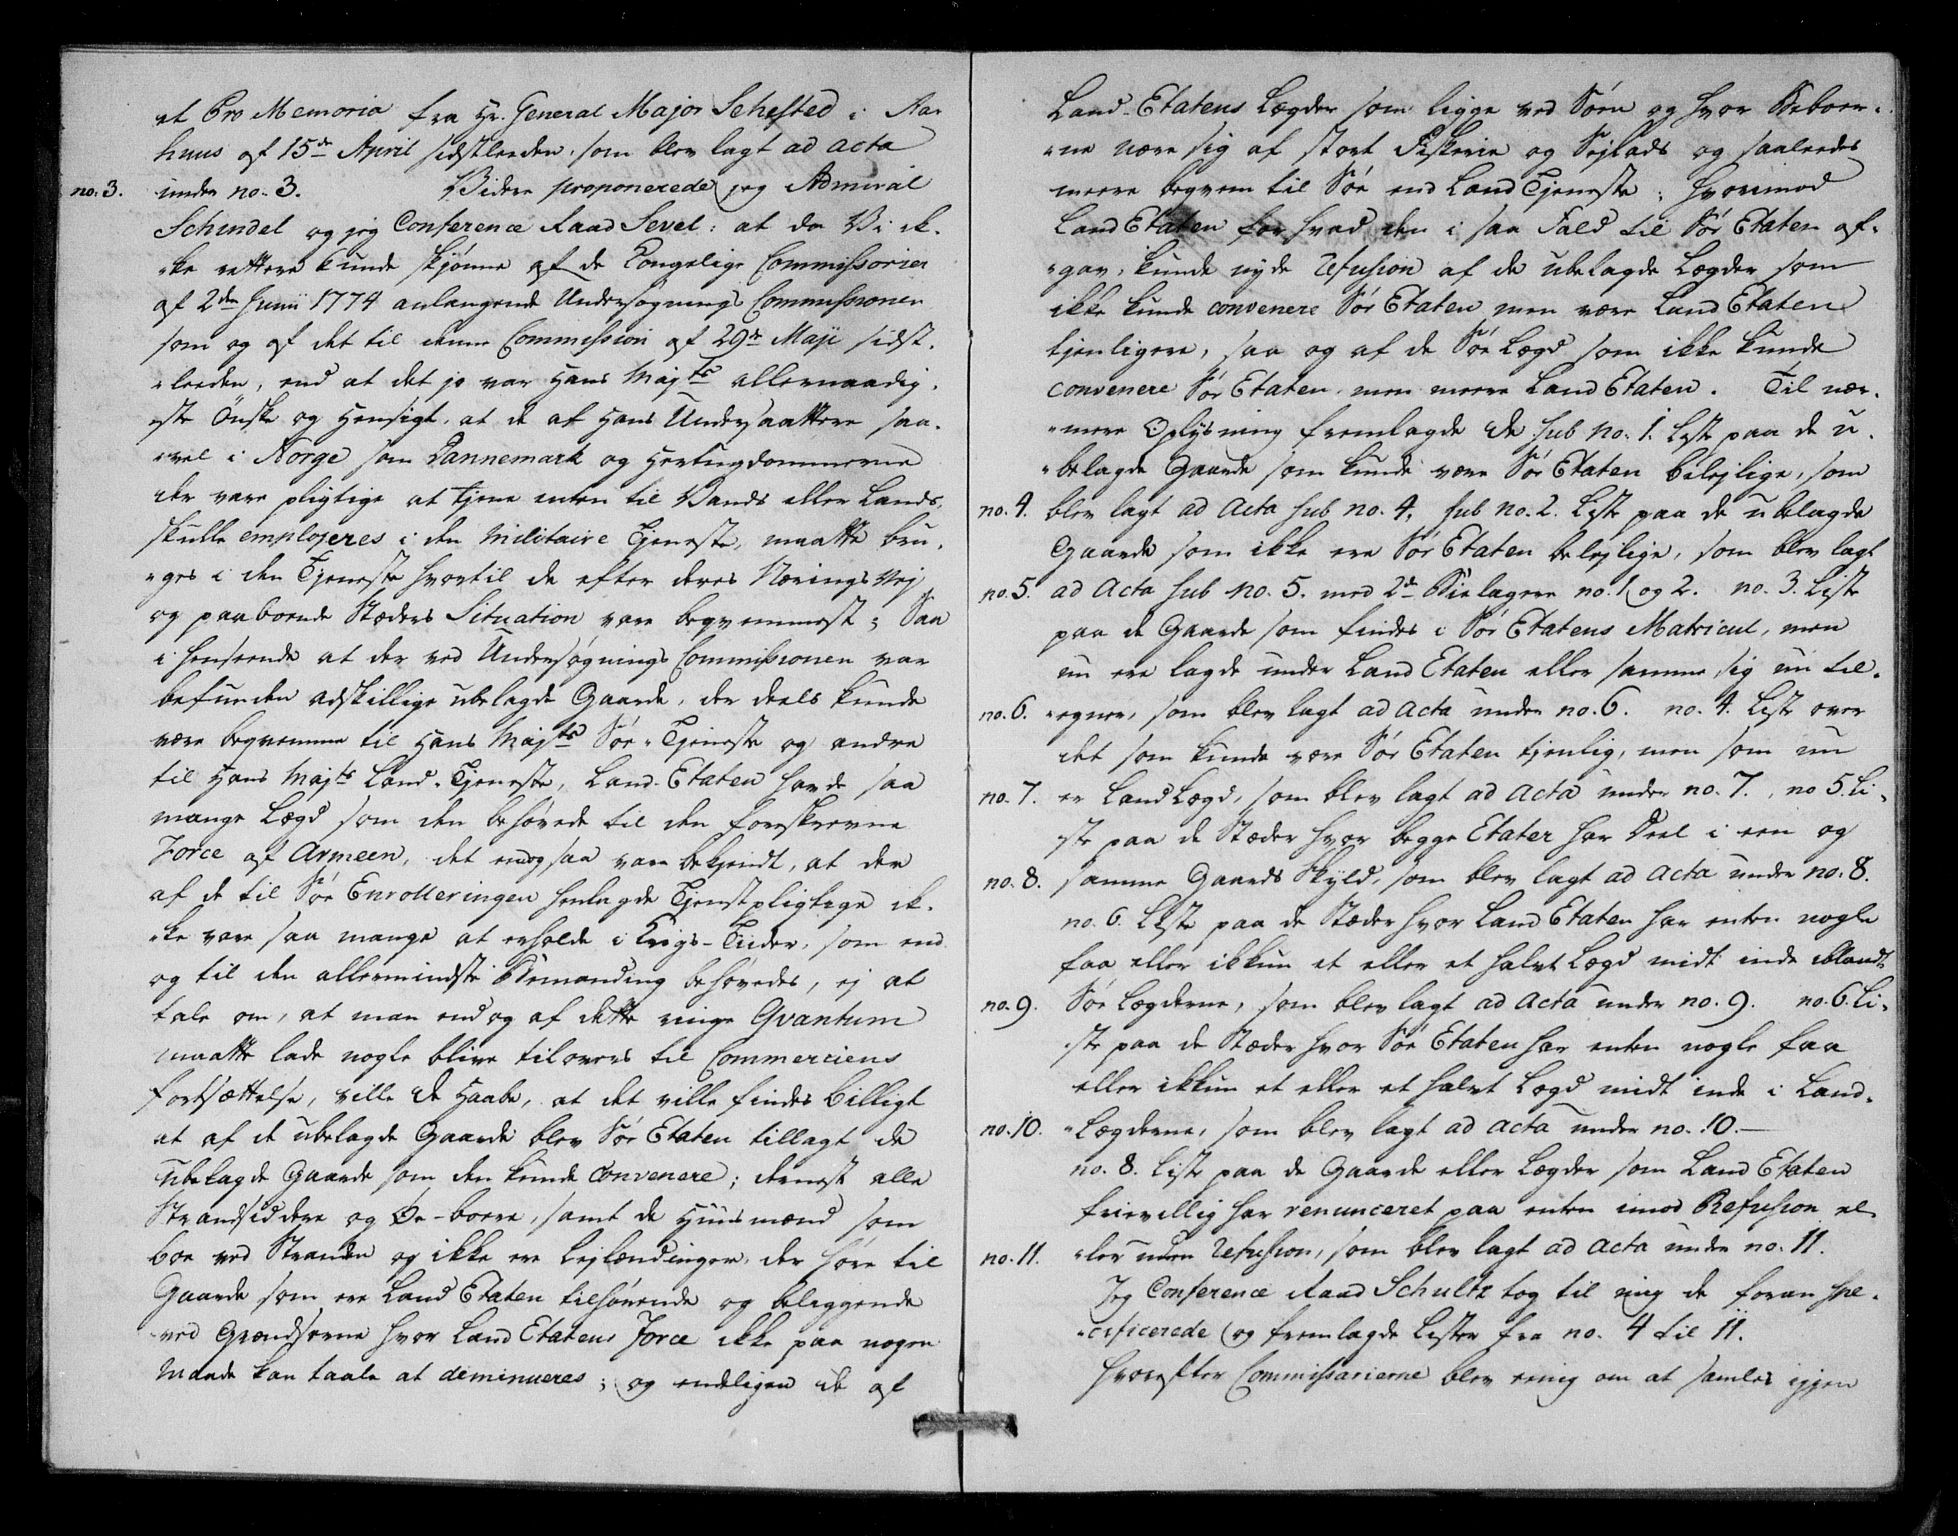 et Pro Memoria fra Hr. General Major Schested i Aar
huus af 15de April sidstleeden, som blev lagt ad acta
no. 3. under no. 3. Videre proponerede jeg Admiral
Schindel og jeg Conference Raad Sevel: at da Vi ik-
"ke rettere kunde skjønne af de Kongelige Commissorier
af 2den Junii 1774 anlangende Undersøgnings Commissionen
som og af det til denne Commission af 29de Maji sidst-
"leeden, end at det jo var Hans Majts allernaadig-
"ste Önske og Hensigt, at de af Hans Undersaattere saa-
"vel i Norge som Dannemark og Hertugdommerne
der vare pligtige at tjene enten til Vands eller Lands,
skulle employeres i den Militaire Tjeneste, maatte bru-
"ges i den Tjeneste hvortil de efter deres Nærings Vej
og paaboende Stæders Situation vare beqvemmest; Saa
i henseende at der ved Undersøgnings Commissionen var
befunden adskillige ubelagde Gaarde, der deels kunde
være beqvemme til Hans Majts Søe-Tjeneste og andre
til Hans Majts Land-Tjeneste, Land-Etaten havde saa
mange Lægd som den behøvede til den foreskrevne
Force af Armeen, det endog saa vare bekjendt, at der
af de til Søe Enrolleringen henlagde Tjenstpligtige ik-
"ke vare saa mange at erholde i Krigs-Tiider, som end
og til den allermindste Bemanding behøvedes, ej at
tale om, at man end og af dette ringe Qvantum
maatte lade nogle blive tilovers til Commerciens
fortsættelse, ville de Haabe, at det ville findes billigt
at af de ubelagde Gaarde blev Søe Etaten tillagt de
ubelagde Gaarde som den kunde convenere; dernest alle
Strandsiddere og Øe-boere, samt de Huusmænd som
boe ved Stranden og ikke ere Lejlændinger, der høre til
Gaarde som ere Land Etaten tilhørende og beliggende
ved Grændserne hvor Land Etatens Force ikke paa nogen
Maade kan taale at deminueres; og endeligen de af
Land-Etatens Lægder som ligge ved Søen og hvor Beboer-
"ne nære sig af stort Fiskerie og Sejlads og saaleedes
meere beqvem til Søe end Land Tjeneste; hvorimod
Land Etaten for hvad den i saa Fald til Søe Etaten af-
"gav, kunde nyde Refusion af de ubelagde Lægder som
ikke kunde convenere Søe Etaten men være Land Etaten
tjenligere, saa og af de Søe Lægd som ikke kunde
convenere Søe Etaten, men meere Land Etaten. Til nær-
"mere Oplysning fremlagde de sub No. 1. Liste paa de u-
"belagde Gaarde som kunde være Søe Etaten belejlige, som
no. 4. blev lagt ad Acta sub no. 4, sub no. 2. Liste paa de ubelagde
Gaarde som ikke ere Søe Etaten belejlige, som blev lagt
no. 5. ad Acta sub no. 5. med 2de Bielagere no. 1 og 2. no. 3. Liste
paa de Gaarde som findes i Søe Etatens Matricul, men
nu ere lagde under Land Etaten eller samme sig nu til-
no. 6. "egner, som blev lagt ad Acta under no. 6. no. 4. Liste over
det som kunde være Søe Etaten tjenlig, men som nu
no. 7. er Land Lægd, som blev lagt ad Acta under no. 7., no 5. Li-
"ste paa de Stæder hvor begge Etater har Deel i een og
no. 8. samme Gaards Skyld, som blev lagt ad Acta under no. 8.
no. 6. Liste paa de Stæder hvor Land Etaten har enten nogle
faa eller ikkun et eller et halvt Lægd midt inde iblandt
no. 9. Søe Lægderne, som blev lagt ad Acta under no. 9. no. 6. Li-
"ste paa de Stæder hvor Søe Etaten har enten nogle faa
eller ikkun et eller et halvt Lægd midt inde i Land-
no. 10. "Lægderne, som blev lagt ad Acta under no. 10.—
no. 8. Liste paa de Gaarde eller Lægder som Land Etaten
frievillig har renunceret paa enten imod Refusion el-
no. 11. "ler uden Refusion, som blev lagt ad Acta under no. 11.
Jeg Conference Raad Schultz tog til mig de foran spe-
"cificerede og fremlagde Lister fra no. 4 til 11.
Hvorefter Commissarierne blev eenig om at samles igjen